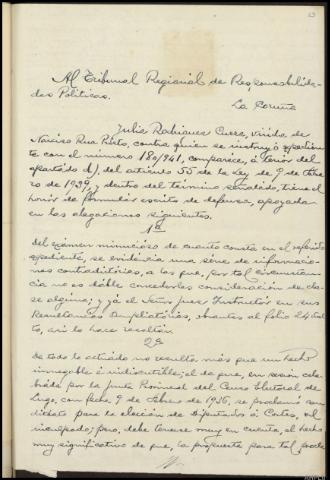 Al Tribunal Regional de Responsabilida-
des Politicas.
La Coruña
Julia Rodriguez Cuera, viuda de
Narciso Rua Pinto, contra quien se instruyó expedien
te con el número 180/941, comparece, a tenor del
apartado d), del articulo 55 de la Ley de 9 de Febre
ro de 1939, y dentro del termino señalado, tiene el
honor de formular escrito de defensa, apoyada
en las alegaciones siguientes.
1ª
Del exámen minucioso de cuanto consta en el referido
expediente, se evidencia una série de informacio-
nes contradictorias, a las que, por tal circunstan
cia no es dable concederles consideración de cla-
se alguna; y yá el Señor Juez Instructor en sus
Resultandos Ampliatorios, obrantes al folio 24
to, asi lo hace resaltar
2ª
De todo lo actuado no resulta más que un hecho
innegable é indiscutible; el de que, en sesión cele
brada por la Junta Provincial del Censo Electoral de
Lugo, con fecha 9 de Febrero de 1936, se proclamó can
didato para la elección de Diputados á Cortes, al
inculpado; pero, debe tenerse muy en cuenta, el hecho
muy significativo de que, la propuesta para tal procla